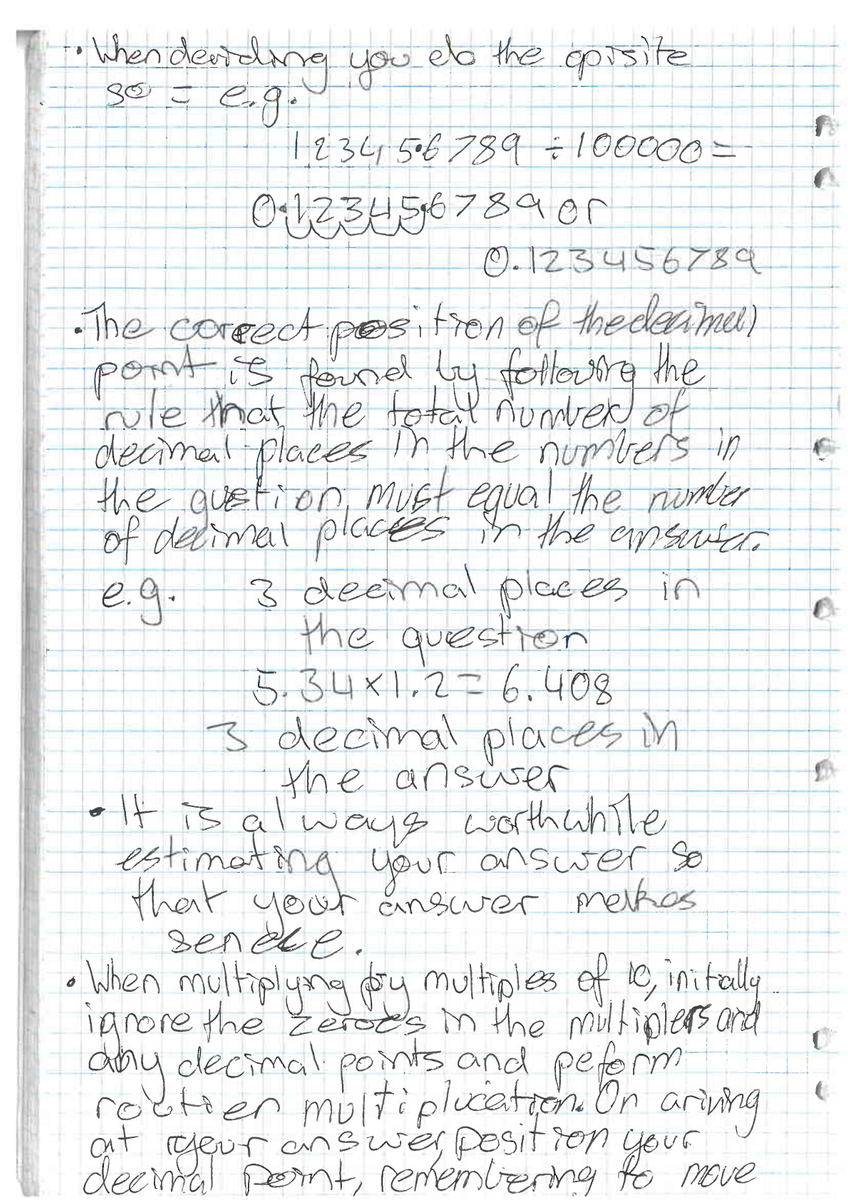 • When deviding you do the opisite
so = e.g.
12345.6789 ÷ 100000 =
0.12345.6789 or
0.123456789
• The correct position of the decimal
point is found by following the
rule that the total number of
decimal places in the numbers in
the question must equal the number
of decimal places in the answer.
e.g. 3 decimal places in
the question
5.34 × 1.2 = 6.408
3 decimal places in
the answer
• It is always worthwhile
estimating your answer so
that your answer makes
sence.
• When multiplying by multiples of 10, initially
ignore the zeroes in the multiplers and
any decimal points and peform
routien multiplucation. On ariving
at your answer, position your
decimal point, remembering to move